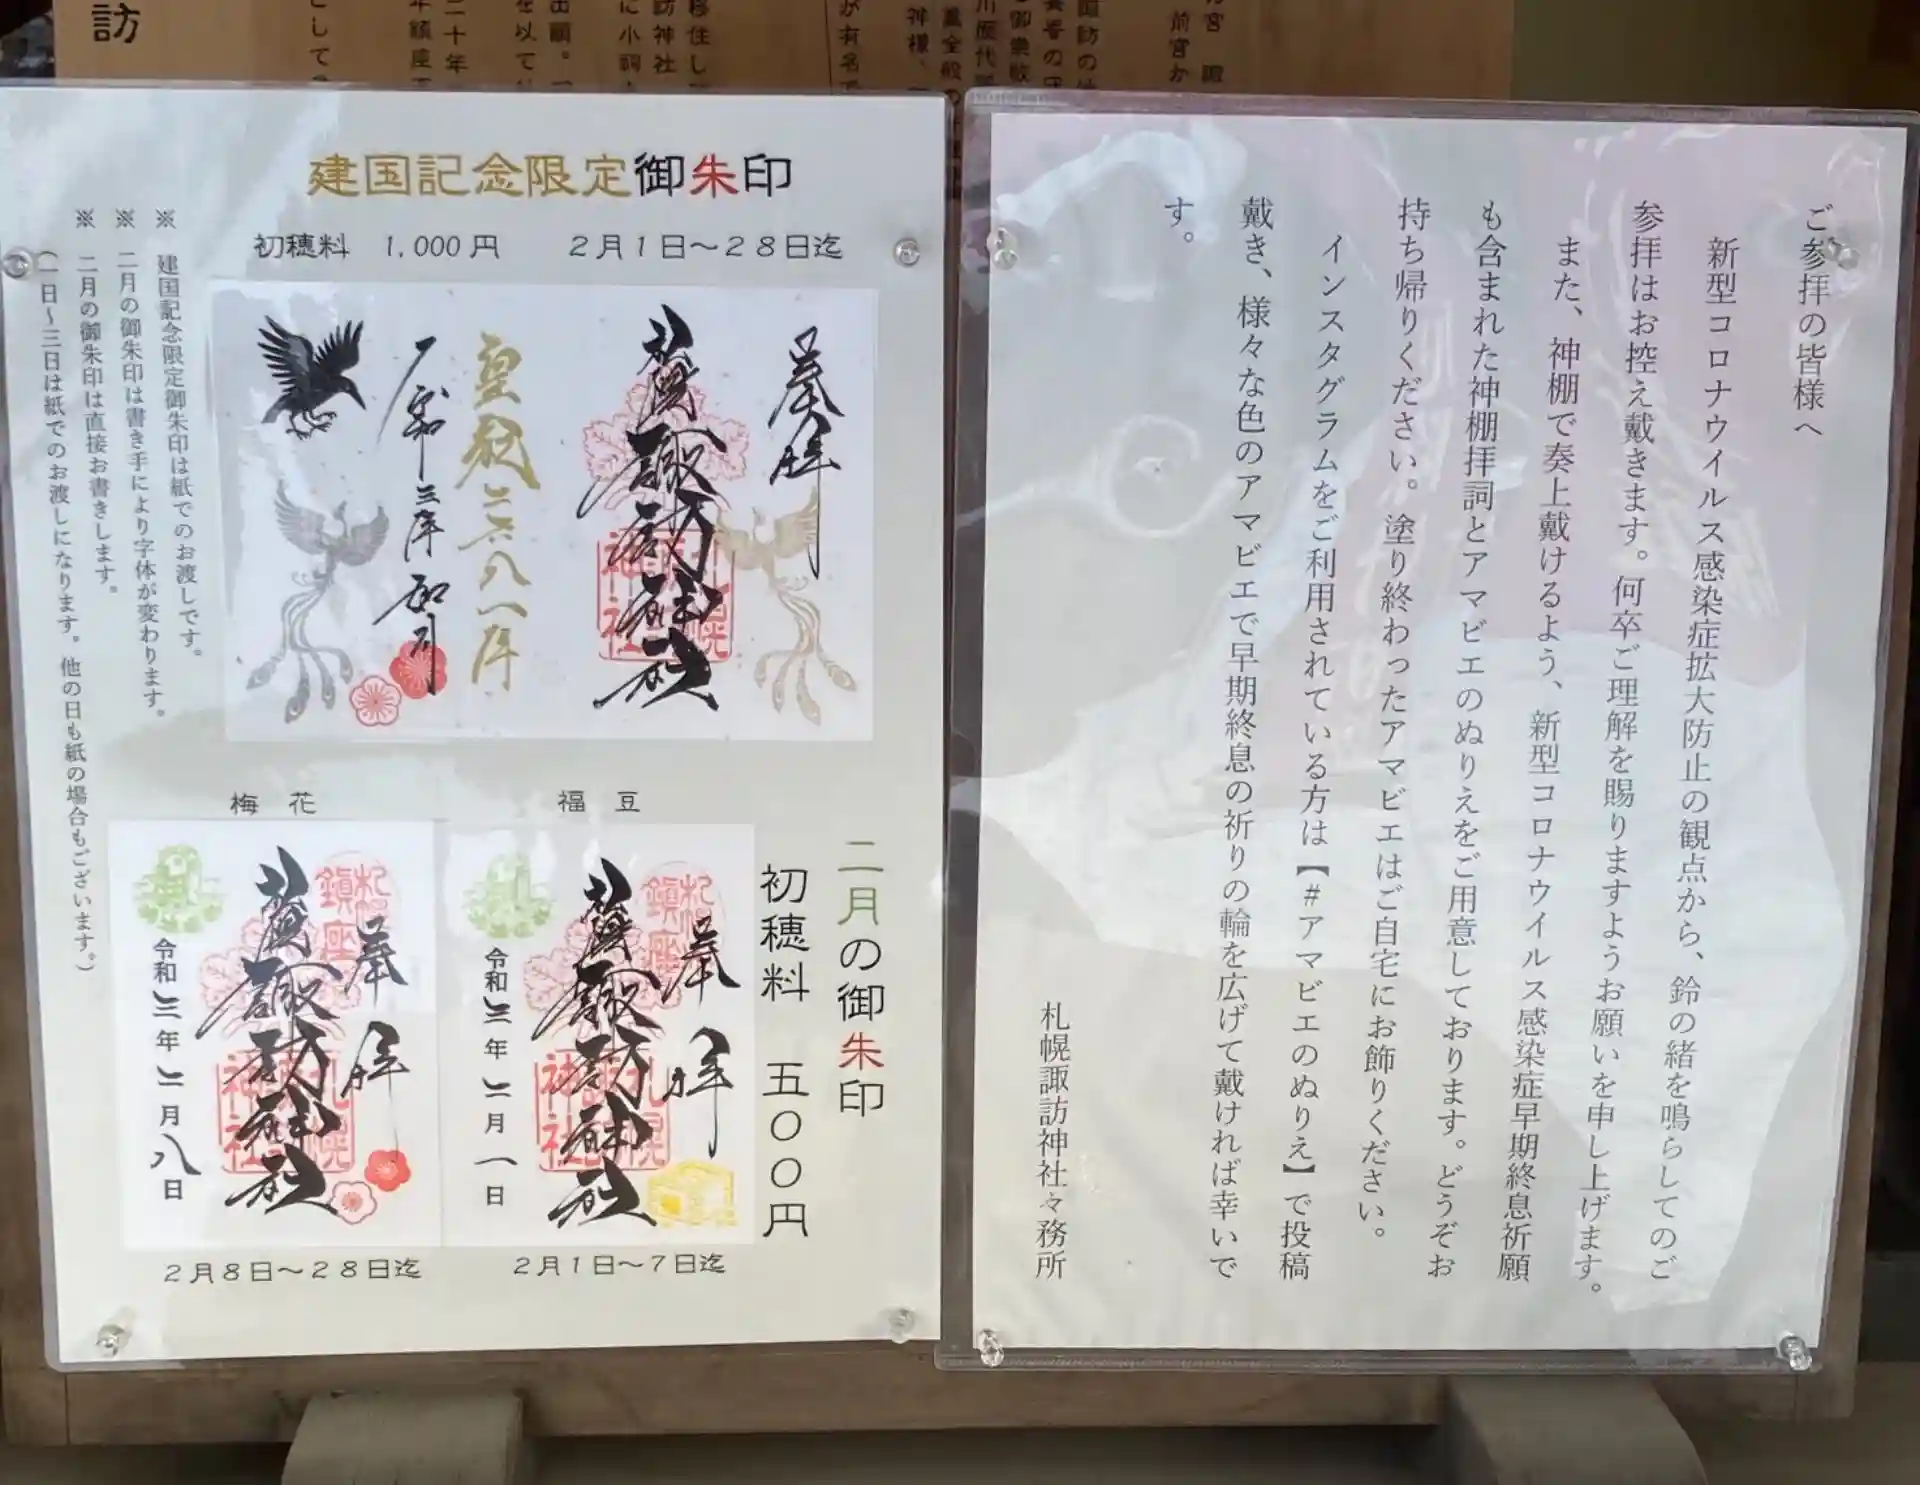 訪
建国記念限定御朱印
初穂料 1,000円 2月1日～28日迄
奉拝
諏訪神社
皇紀二六八一年
令和三年
※ 建国記念限定御朱印は紙でのお渡しです。
※ 二月の御朱印は書き手により字体が変わります。
※ 二月の御朱印は直接お書きします。
(一日～三日は紙でのお渡しになります。他の日も紙の場合もございます。)
二月の御朱印
初穂料 五〇〇円
福豆
奉拝
諏訪神社
令和三年二月一日
2月1日～7日迄
梅花
奉拝
諏訪神社
令和三年二月八日
2月8日～28日迄
ご参拝の皆様へ
新型コロナウイルス感染症拡大防止の観点から、鈴の緒を鳴らしてのご
参拝はお控え戴きます。何卒ご理解を賜りますようお願いを申し上げます。
また、神棚で奏上戴けるよう、新型コロナウイルス感染症早期終息祈願
も含まれた神棚拝詞とアマビエのぬりえをご用意しております。どうぞお
持ち帰りください。塗り終わったアマビエはご自宅にお飾りください。
インスタグラムをご利用されている方は【#アマビエのぬりえ】で投稿
戴き、様々な色のアマビエで早期終息の祈りの輪を広げて戴ければ幸いで
す。
札幌諏訪神社々務所